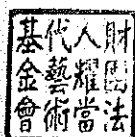 財團法
人耀當
代藝術
基金會